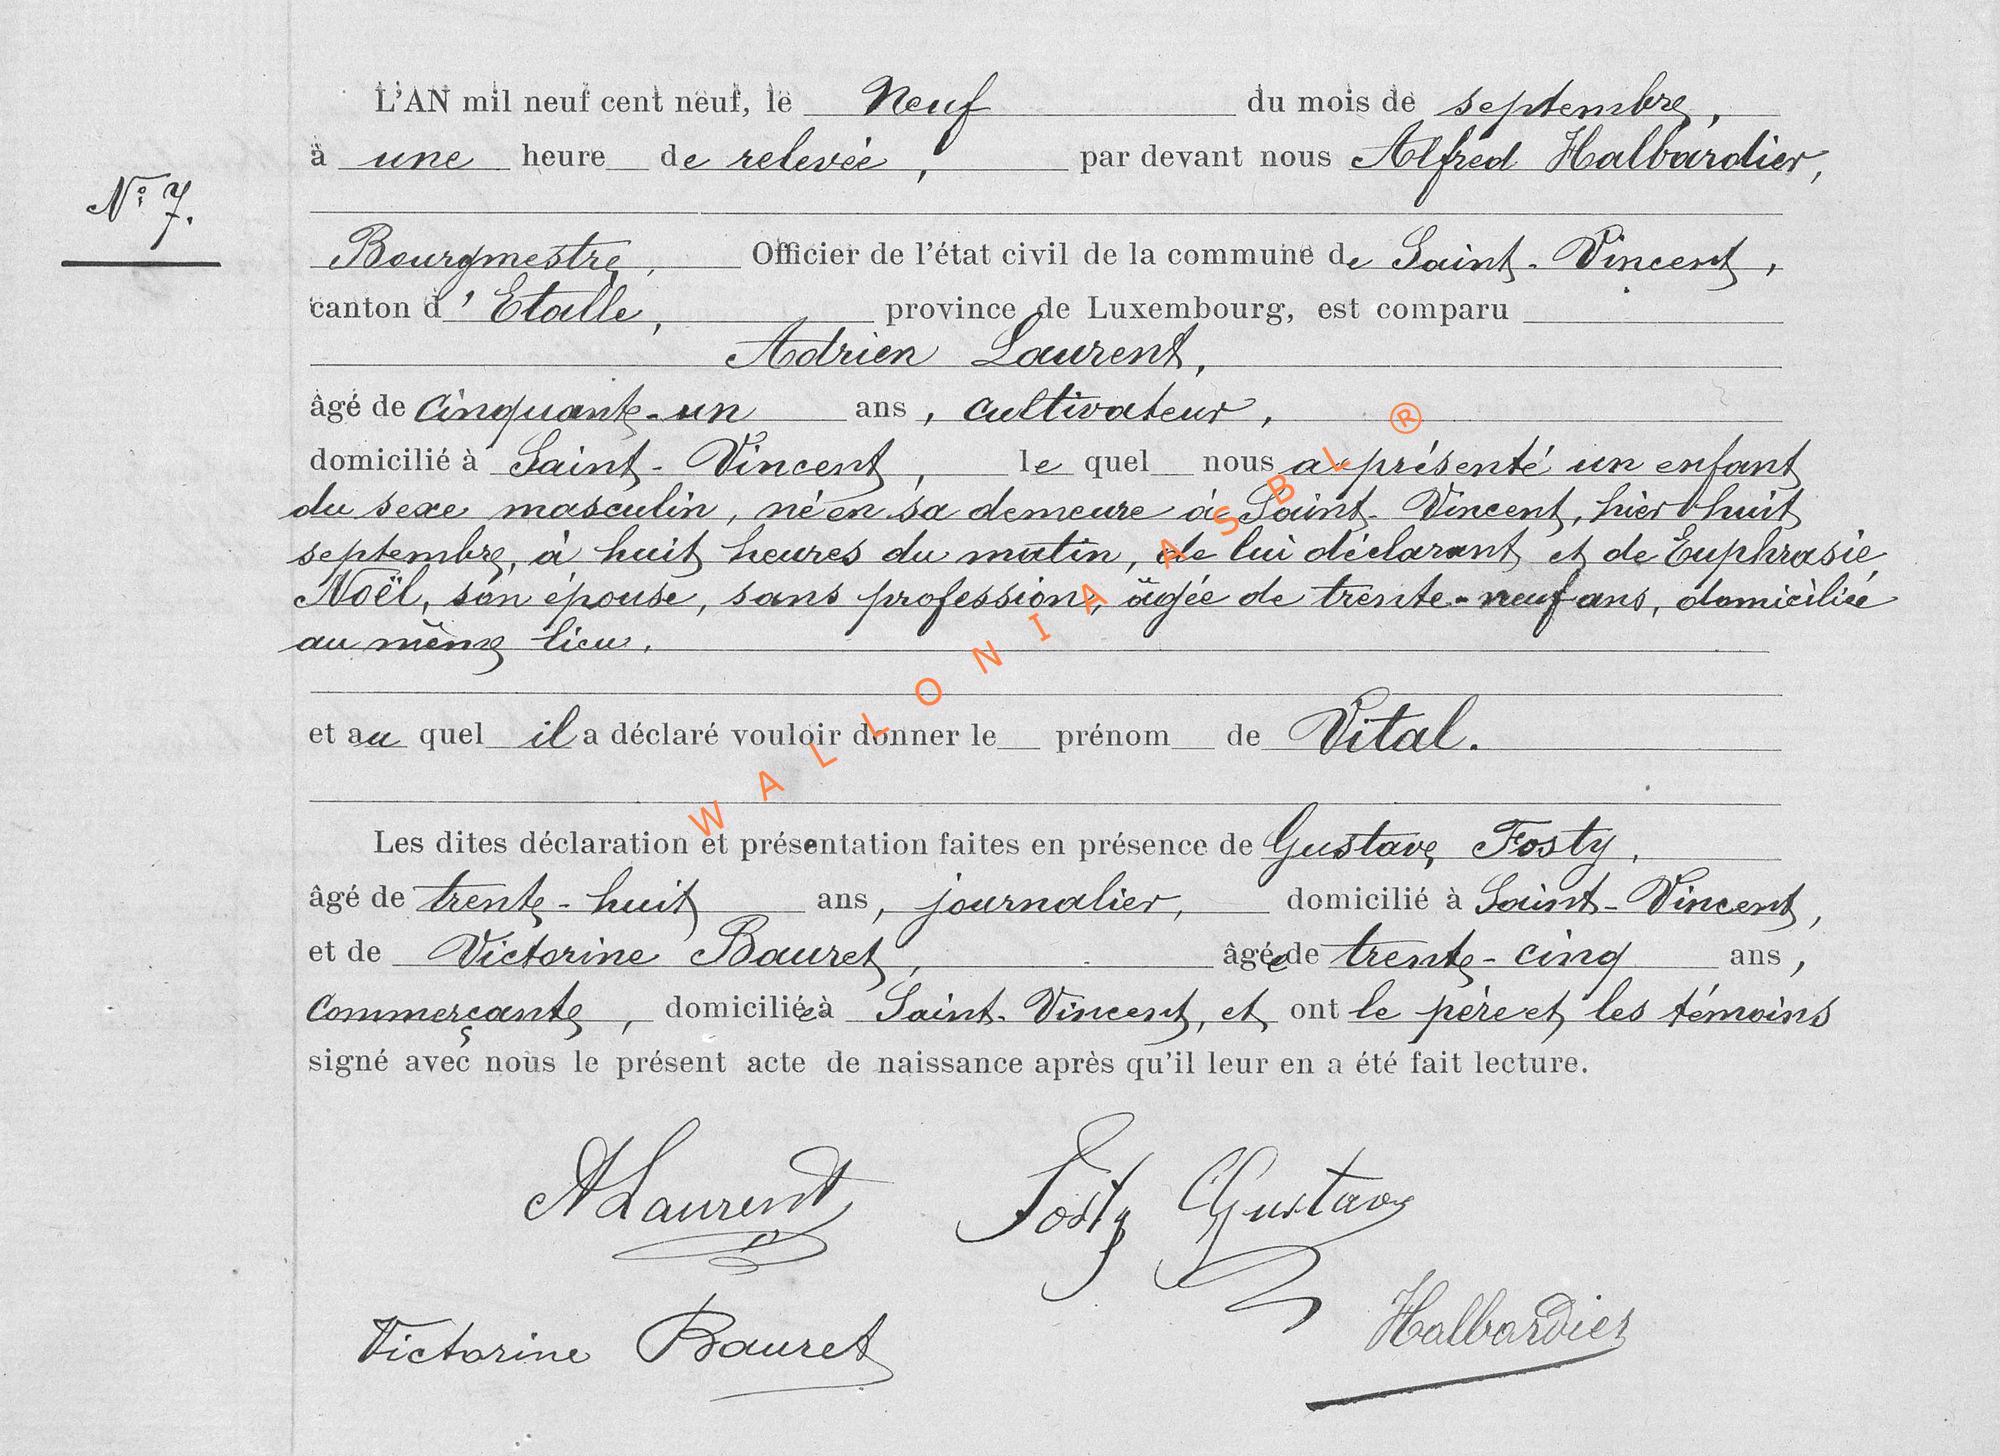 L'AN mil neuf cent neuf, le Neuf du mois de septembre,
à une heure de relevée, par devant nous Alfred Halbardier,
N° 7.
Bourgmestre, Officier de l'état civil de la commune de Saint-Vincent,
canton d'Etalle, province de Luxembourg, est comparu
Adrien Laurent,
âgé de cinquante-un ans, cultivateur,
domicilié à Saint-Vincent, le quel nous a présenté un enfant
du sexe masculin, né en sa demeure à Saint-Vincent, hier huit
septembre, à huit heures du matin, de lui déclarant et de Euphrasie
Noël, son épouse, sans profession, âgée de trente-neuf ans, domiciliée
au même lieu.
et au quel il a déclaré vouloir donner le prénom de Vital.
Les dites déclaration et présentation faites en présence de Gustave Fosty,
âgé de trente-huit ans, journalier, domicilié à Saint-Vincent,
et de Victorine Bauret, âgée de trente-cinq ans,
commerçante, domiciliée à Saint-Vincent, et ont le père et les témoins
signé avec nous le présent acte de naissance après qu'il leur en a été fait lecture.
ALaurent Fosty Gustave
Victorine Bauret Halbardier
WALLONIA ASBL ®